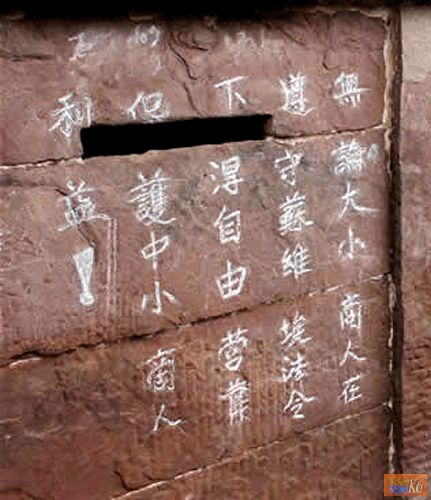 無論大小商人在
遵守蘇維埃法令
下得自由营業
保護中小商人
利益！
K6